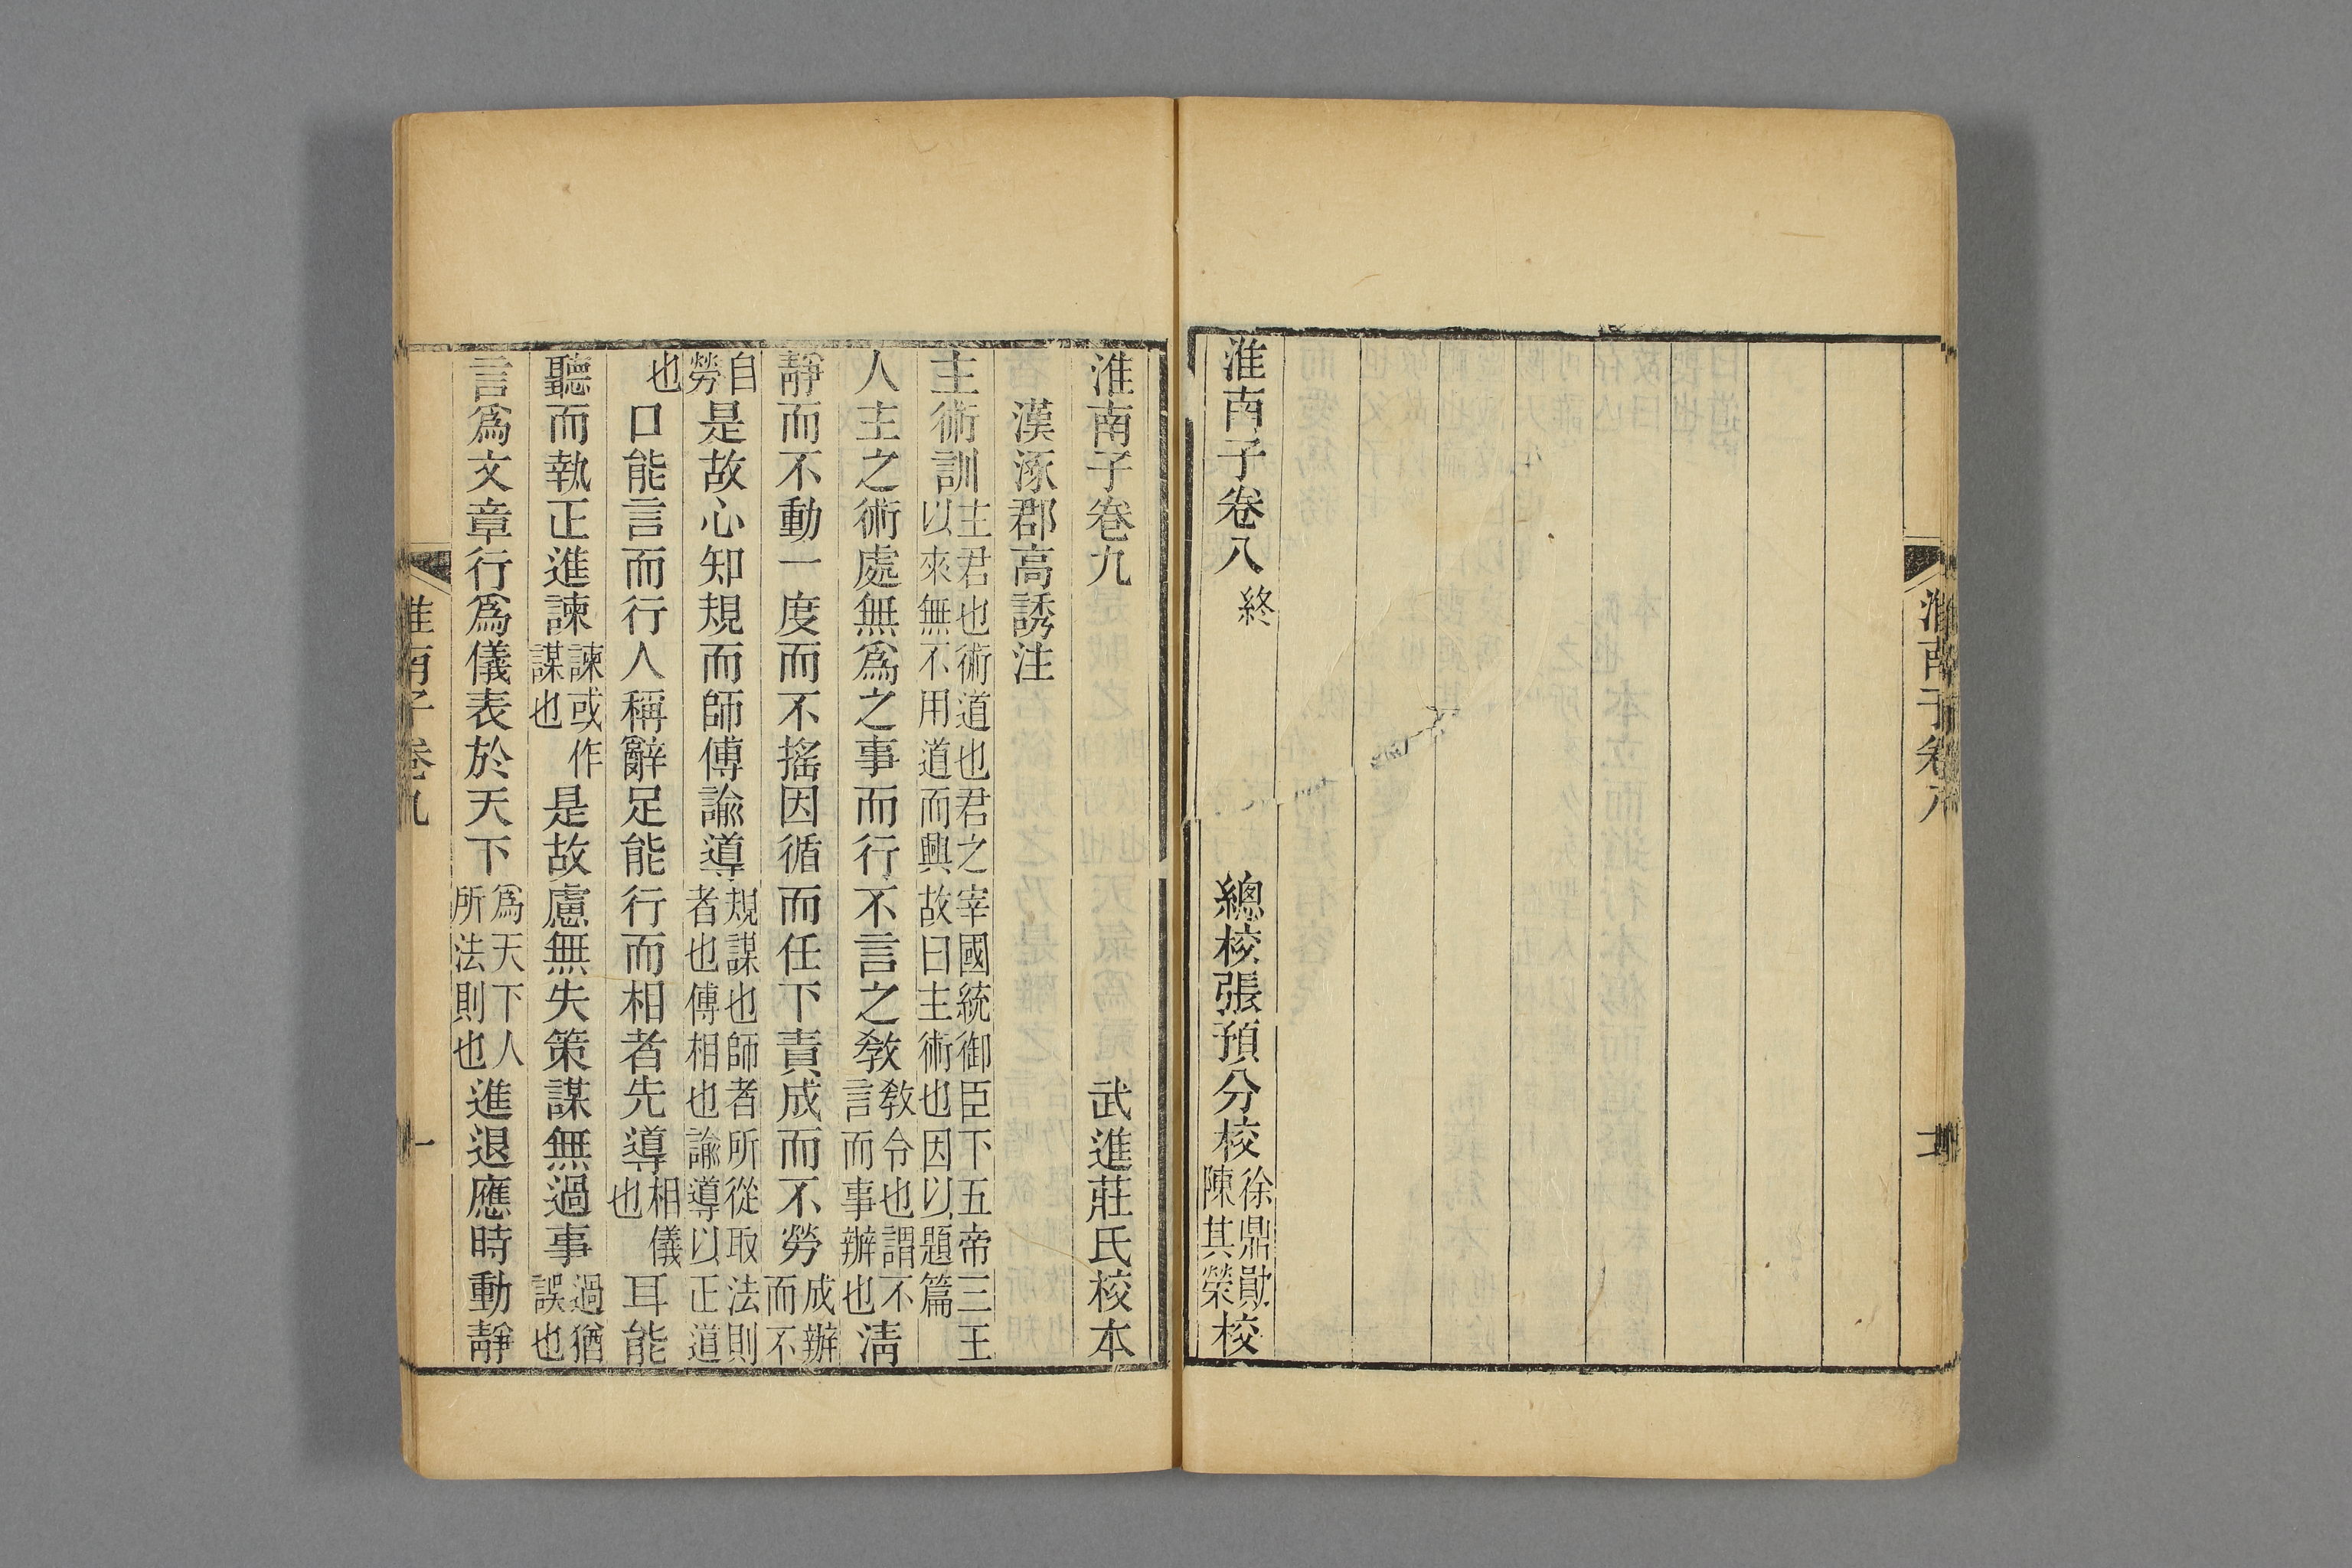 淮南子卷八
十一
淮南子卷八終 總校張預分校徐鼎勛陳其榮校
淮南子卷九 武進莊氏校本
漢涿郡高誘注
主術訓主君也術道也君之宰國統御臣下五帝三王以來無不用道而興故曰主術也因以題篇
人主之術處無爲之事而行不言之敎敎令也謂不言而事辦也清
靜而不動一度而不搖因循而任下責成而不勞成辦而不
自勞是故心知規而師傅諭導規謀也師者所從取法則者也傅相也諭導以正道
也口能言而行人稱辭足能行而相者先導相儀也耳能
聽而執正進諫諫或作謀也是故慮無失策謀無過事過猶誤也
言爲文章行爲儀表於天下爲天下人所法則也進退應時動靜
淮南子卷九
一